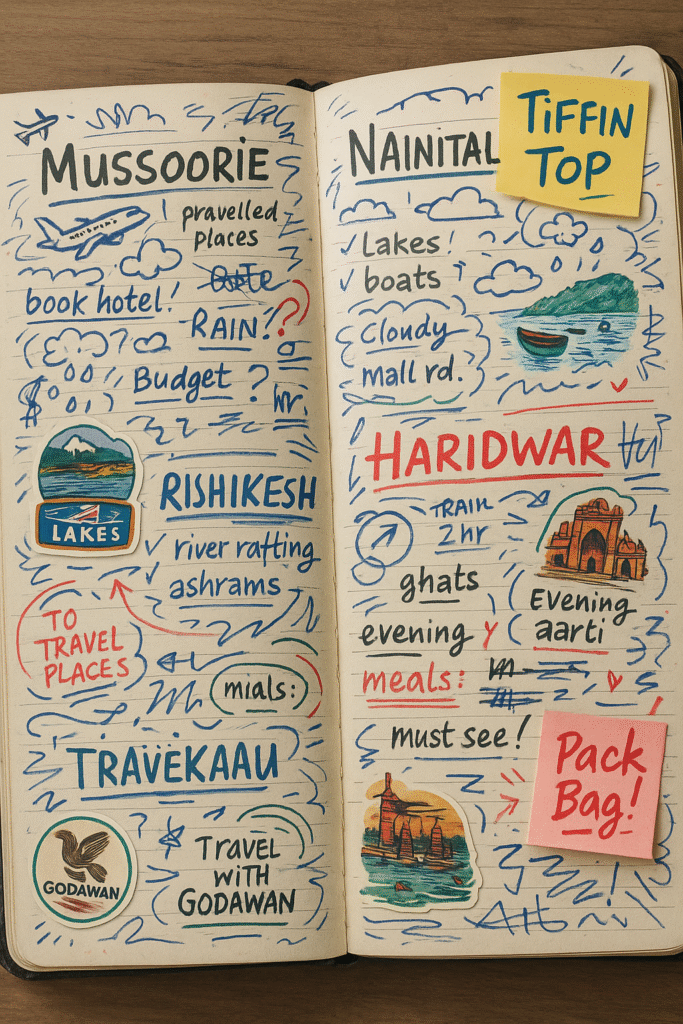 MUSSOORIE
pravelled
places
book hotel!
RAIN??
Budget ?
$
LAKES
RISHIKESH
✓ river rafting
✓ ashrams
TO
TRAVEL
PLACES
mials:)
TRAVËKAAU
GODAWAN
TRAVEL
WITH
GODAWAN
NAINITAL
TiFFIN
TOP
✓ Lakes!
✓ boats
Cloudy
mall rd.
HARIDWAR
TRAIN
2 hr
ghats
Evening
aarti
evening
meals:
must see!
Pack
Bag!